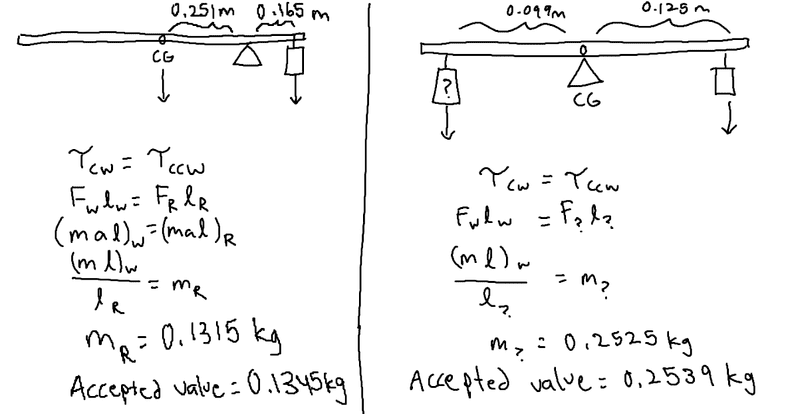 0.251m 0.165 m
CG
τcw = τccw
F_w l_w = F_R l_R
(mal)_w = (mal)_R
(ml)_w / l_R = m_R
m_R = 0.1315 kg
Accepted value = 0.1345kg
0.099m 0.125m
?
CG
τcw = τccw
F_w l_w = F_? l_?
(ml)_w / l_? = m_?
m_? = 0.2525 kg
Accepted value = 0.2539 kg